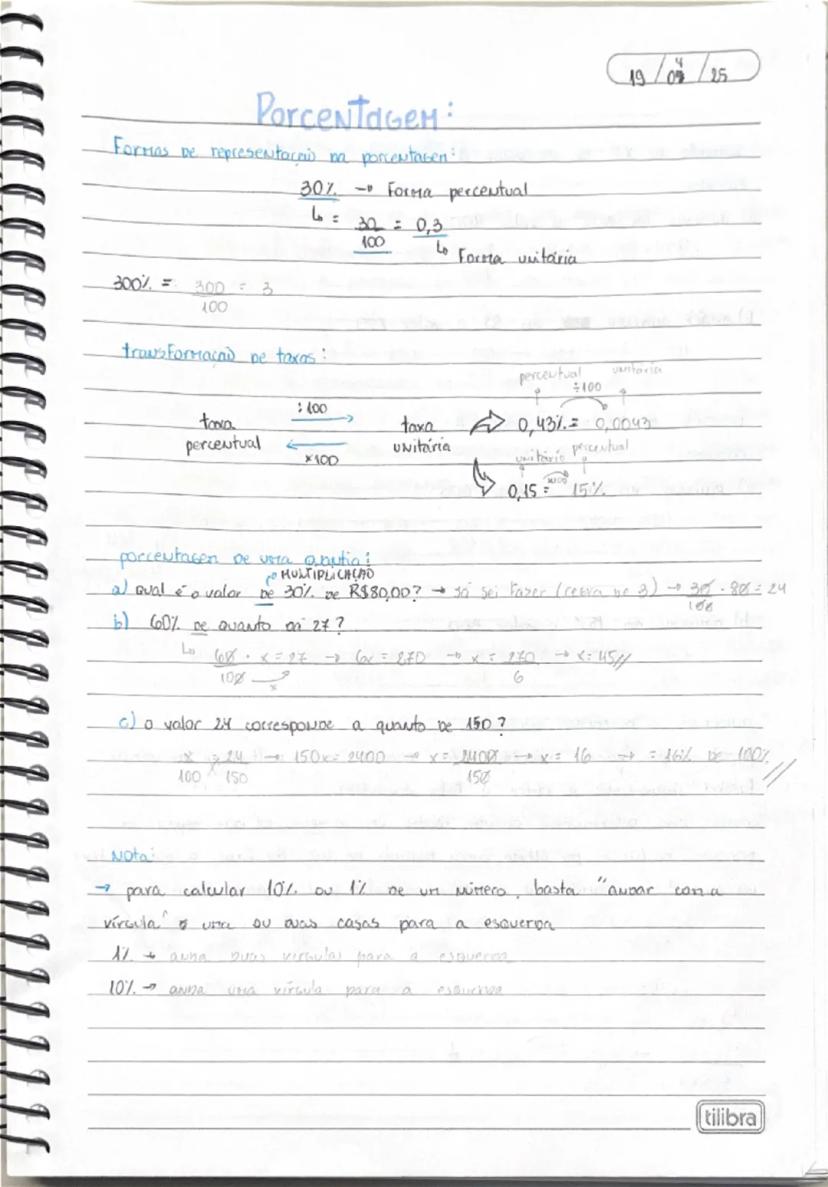 19/04/25
Porcentagem:
Formas de representação da porcentagem:
30% → Forma percentual
↳ = 30/100 = 0,3
↳ Forma unitária
300% = 300/100 = 3
transformação de taxas:
percentual unitária
÷100
taxa percentual : 100 → taxa unitária ⇒ 0,43% = 0,0043
← x100
unitário percentual
x100
0,15 = 15%
porcentagem de uma quantia:
MULTIPLICAÇÃO
a) Qual é o valor de 30% de R$80,00? → já sei fazer (regra de 3) → 30/100 . 80 = 24
b) 60% de quanto dá 27?
↳ 60/100 . x = 27 → 6x = 270 → x = 270/6 → x = 45//
c) o valor 24 corresponde a quanto de 150?
x/100 = 24/150 → 150x = 2400 → x = 2400/150 → x = 16 → = 16% de 100% //
Nota:
→ para calcular 10% ou 1% de um número, basta "andar com a
vírgula" uma ou duas casas para a esquerda
1% → anda duas vírgulas para a esquerda
10% → anda uma vírgula para a esquerda
tilibra